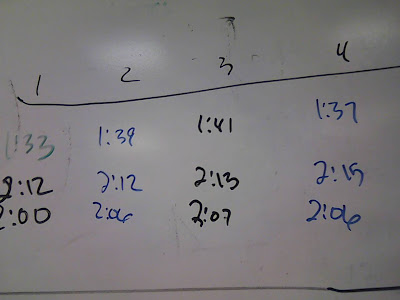 1 2 3 4
1:33 1:39 1:41 1:37
2:12 2:12 2:13 2:15
2:00 2:06 2:07 2:06